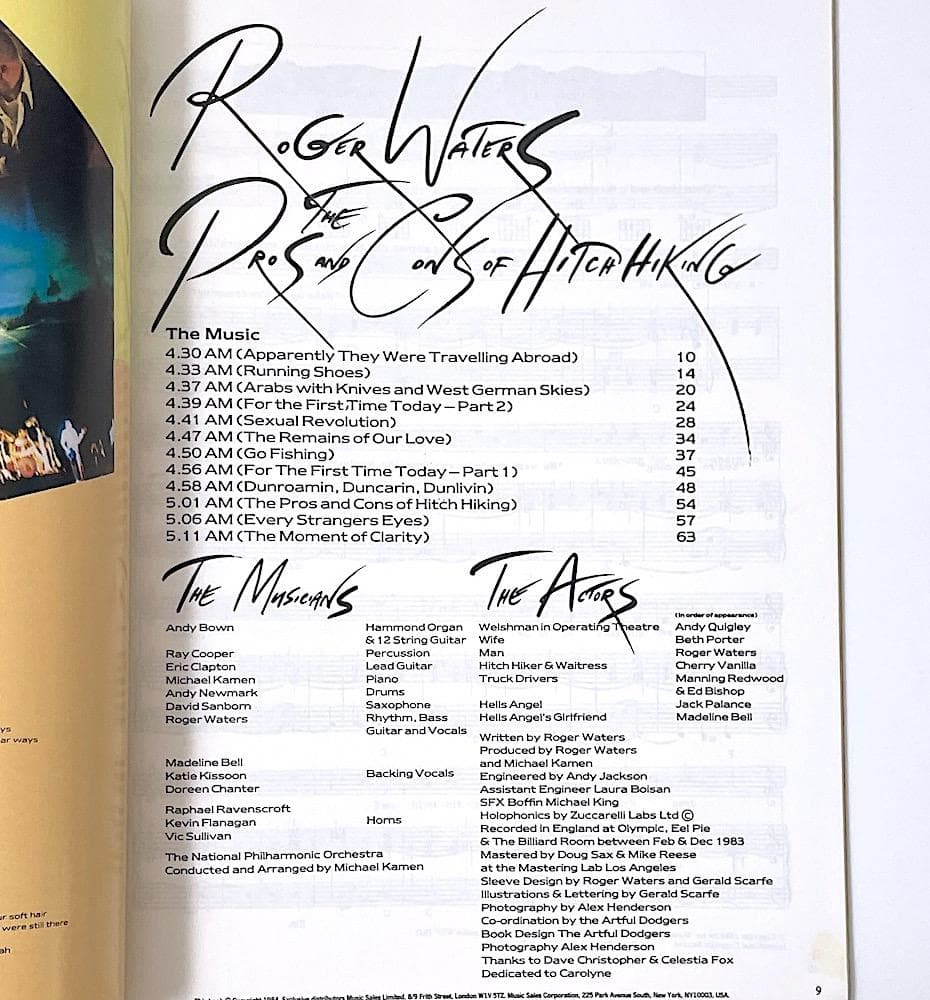 Roger Waters
The
Pros and Cons of Hitch Hiking
The Music
4.30 AM (Apparently They Were Travelling Abroad) 10
4.33 AM (Running Shoes) 14
4.37 AM (Arabs with Knives and West German Skies) 20
4.39 AM (For the First Time Today – Part 2) 24
4.41 AM (Sexual Revolution) 28
4.47 AM (The Remains of Our Love) 34
4.50 AM (Go Fishing) 37
4.56 AM (For The First Time Today – Part 1) 45
4.58 AM (Dunroamin, Duncarin, Dunlivin) 48
5.01 AM (The Pros and Cons of Hitch Hiking) 54
5.06 AM (Every Strangers Eyes) 57
5.11 AM (The Moment of Clarity) 63
The Musicians
Andy Bown Hammond Organ
& 12 String Guitar
Ray Cooper Percussion
Eric Clapton Lead Guitar
Michael Kamen Piano
Andy Newmark Drums
David Sanborn Saxophone
Roger Waters Rhythm, Bass
Guitar and Vocals
Madeline Bell
Katie Kissoon Backing Vocals
Doreen Chanter
Raphael Ravenscroft
Kevin Flanagan Horns
Vic Sullivan
The National Philharmonic Orchestra
Conducted and Arranged by Michael Kamen
The Actors
(In order of appearance)
Welshman in Operating Theatre Andy Quigley
Wife Beth Porter
Man Roger Waters
Hitch Hiker & Waitress Cherry Vanilla
Truck Drivers Manning Redwood
& Ed Bishop
Hells Angel Jack Palance
Hells Angel's Girlfriend Madeline Bell
Written by Roger Waters
Produced by Roger Waters
and Michael Kamen
Engineered by Andy Jackson
Assistant Engineer Laura Boisan
SFX Boffin Michael King
Holophonics by Zuccarelli Labs Ltd ©
Recorded in England at Olympic, Eel Pie
& The Billiard Room between Feb & Dec 1983
Mastered by Doug Sax & Mike Reese
at the Mastering Lab Los Angeles
Sleeve Design by Roger Waters and Gerald Scarfe
Illustrations & Lettering by Gerald Scarfe
Photography by Alex Henderson
Co-ordination by the Artful Dodgers
Book Design The Artful Dodgers
Photography Alex Henderson
Thanks to Dave Christopher & Celestia Fox
Dedicated to Carolyne
9
Copyright 1984. Exclusive distributors Music Sales Limited, 8/9 Frith Street, London W1V 5TZ. Music Sales Corporation, 225 Park Avenue South, New York, NY10003, USA.
ways
soft hair
were still there